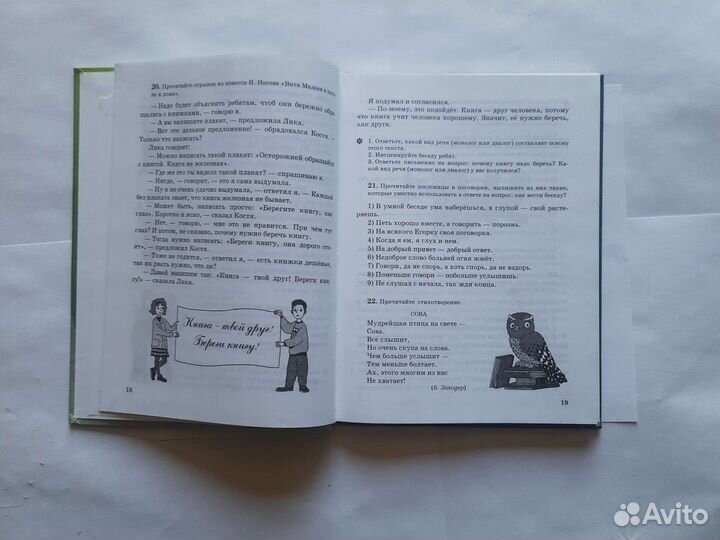 20. Прочитайте отрывок из повести Н. Носова «Витя Малеев в шко-
ле и дома».
— Надо будет объяснить ребятам, чтоб они бережно обра-
щались с книжками, — говорю я.
— А вы напишите плакат, — предложила Лика.
— Вот это дельное предложение! — обрадовался Костя. —
Только что написать?
Лика говорит:
— Можно написать такой плакат: «Осторожней обращайся
с книгой. Книга не железная».
— Где же это ты видела такой плакат? — спрашиваю я.
— Нигде, — говорит, — это я сама выдумала.
— Ну и не очень удачно выдумала, — ответил я. — Каждый
без плаката знает, что книга железная не бывает.
— Может быть, написать просто: «Берегите книгу, как
глаз». Коротко и ясно, — сказал Костя.
— Нет, — говорю, — мне это не нравится. При чём тут
глаз? И потом, не сказано, почему нужно беречь книгу.
— Тогда нужно написать: «Береги книгу, она дорого сто-
ит», — предложил Костя.
— Тоже не годится, — ответил я, — есть книжки дешёвые,
так их рвать нужно, что ли?
— Давай напишем так: «Книга — твой друг! Береги кни-
гу!» — сказала Лика.
Книга - твой друг!
Береги книгу!
18
Я подумал и согласился.
— По-моему, это подойдёт. Книга — друг человека, потому
что книга учит человека хорошему. Значит, её нужно беречь,
как друга.
1. Ответьте, какой вид речи (монолог или диалог) составляет основу
этого текста.
2. Инсценируйте беседу ребят.
3. Ответьте письменно на вопрос: почему книгу надо беречь? Ка-
кой вид речи (монолог или диалог) у вас получился?
21. Прочитайте пословицы и поговорки, выпишите из них такие,
которые уместно использовать в ответе на вопрос: как вести беседу?
1) В умной беседе ума наберёшься, в глупой — свой расте-
ряешь.
2) Петь хорошо вместе, а говорить — порознь.
3) На всякого Егорку своя поговорка.
4) Когда я ем, я глух и нем.
5) На добрый привет — добрый ответ.
6) Недоброе слово больней огня жжёт.
7) Говори, да не спорь, а хоть спорь, да не вздорь.
8) Поменьше говори — побольше услышишь.
9) Не слушал с начала, так жди конца.
22. Прочитайте стихотворение.
СОВА
Мудрейшая птица на свете —
Сова.
Всё слышит,
Но очень скупа на слова.
Чем больше услышит —
Тем меньше болтает.
Ах, этого многим из нас
Не хватает!
(Б. Заходер)
19
Avito